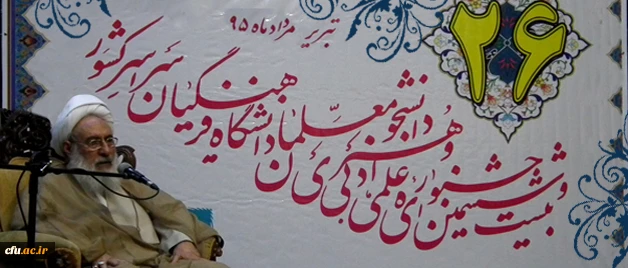 تبریز مرداد ماه ۹۵
۲۶
بیست و ششمین جشنواره ی علمی ادبی و هنری دانشجو معلمان دانشگاه فرهنگیان سراسر کشور
cfu.ac.ir